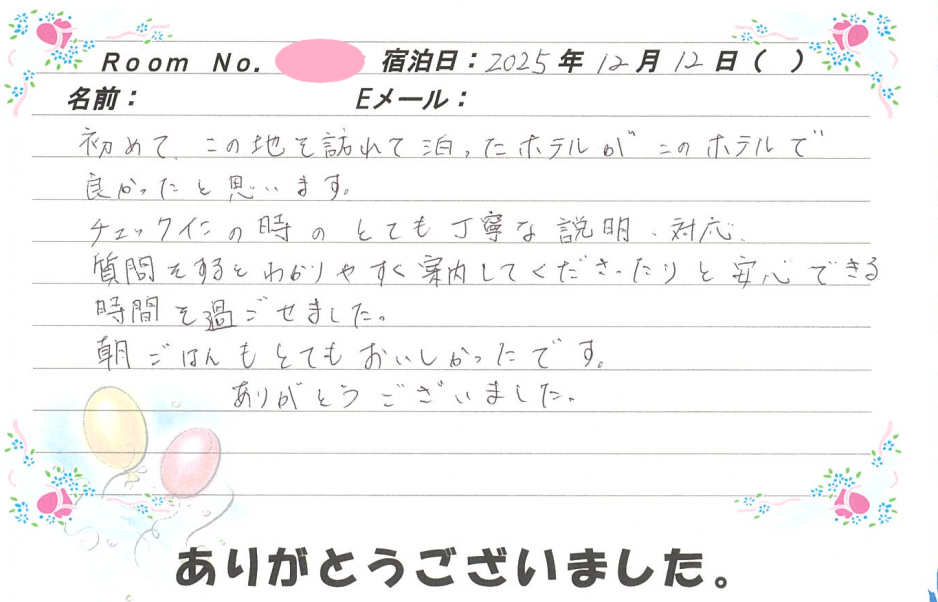 Room No. 宿泊日：2025年 12月 12日（ ）
名前： Eメール：
初めて、この地を訪れて泊ったホテルが このホテルで
良かったと思います。
チェックインの時の とても丁寧な説明、対応、
質問をするとわかりやすく案内してくださったりと安心できる
時間を過ごせました。
朝ごはんもとてもおいしかったです。
ありがとうございました。
ありがとうございました。